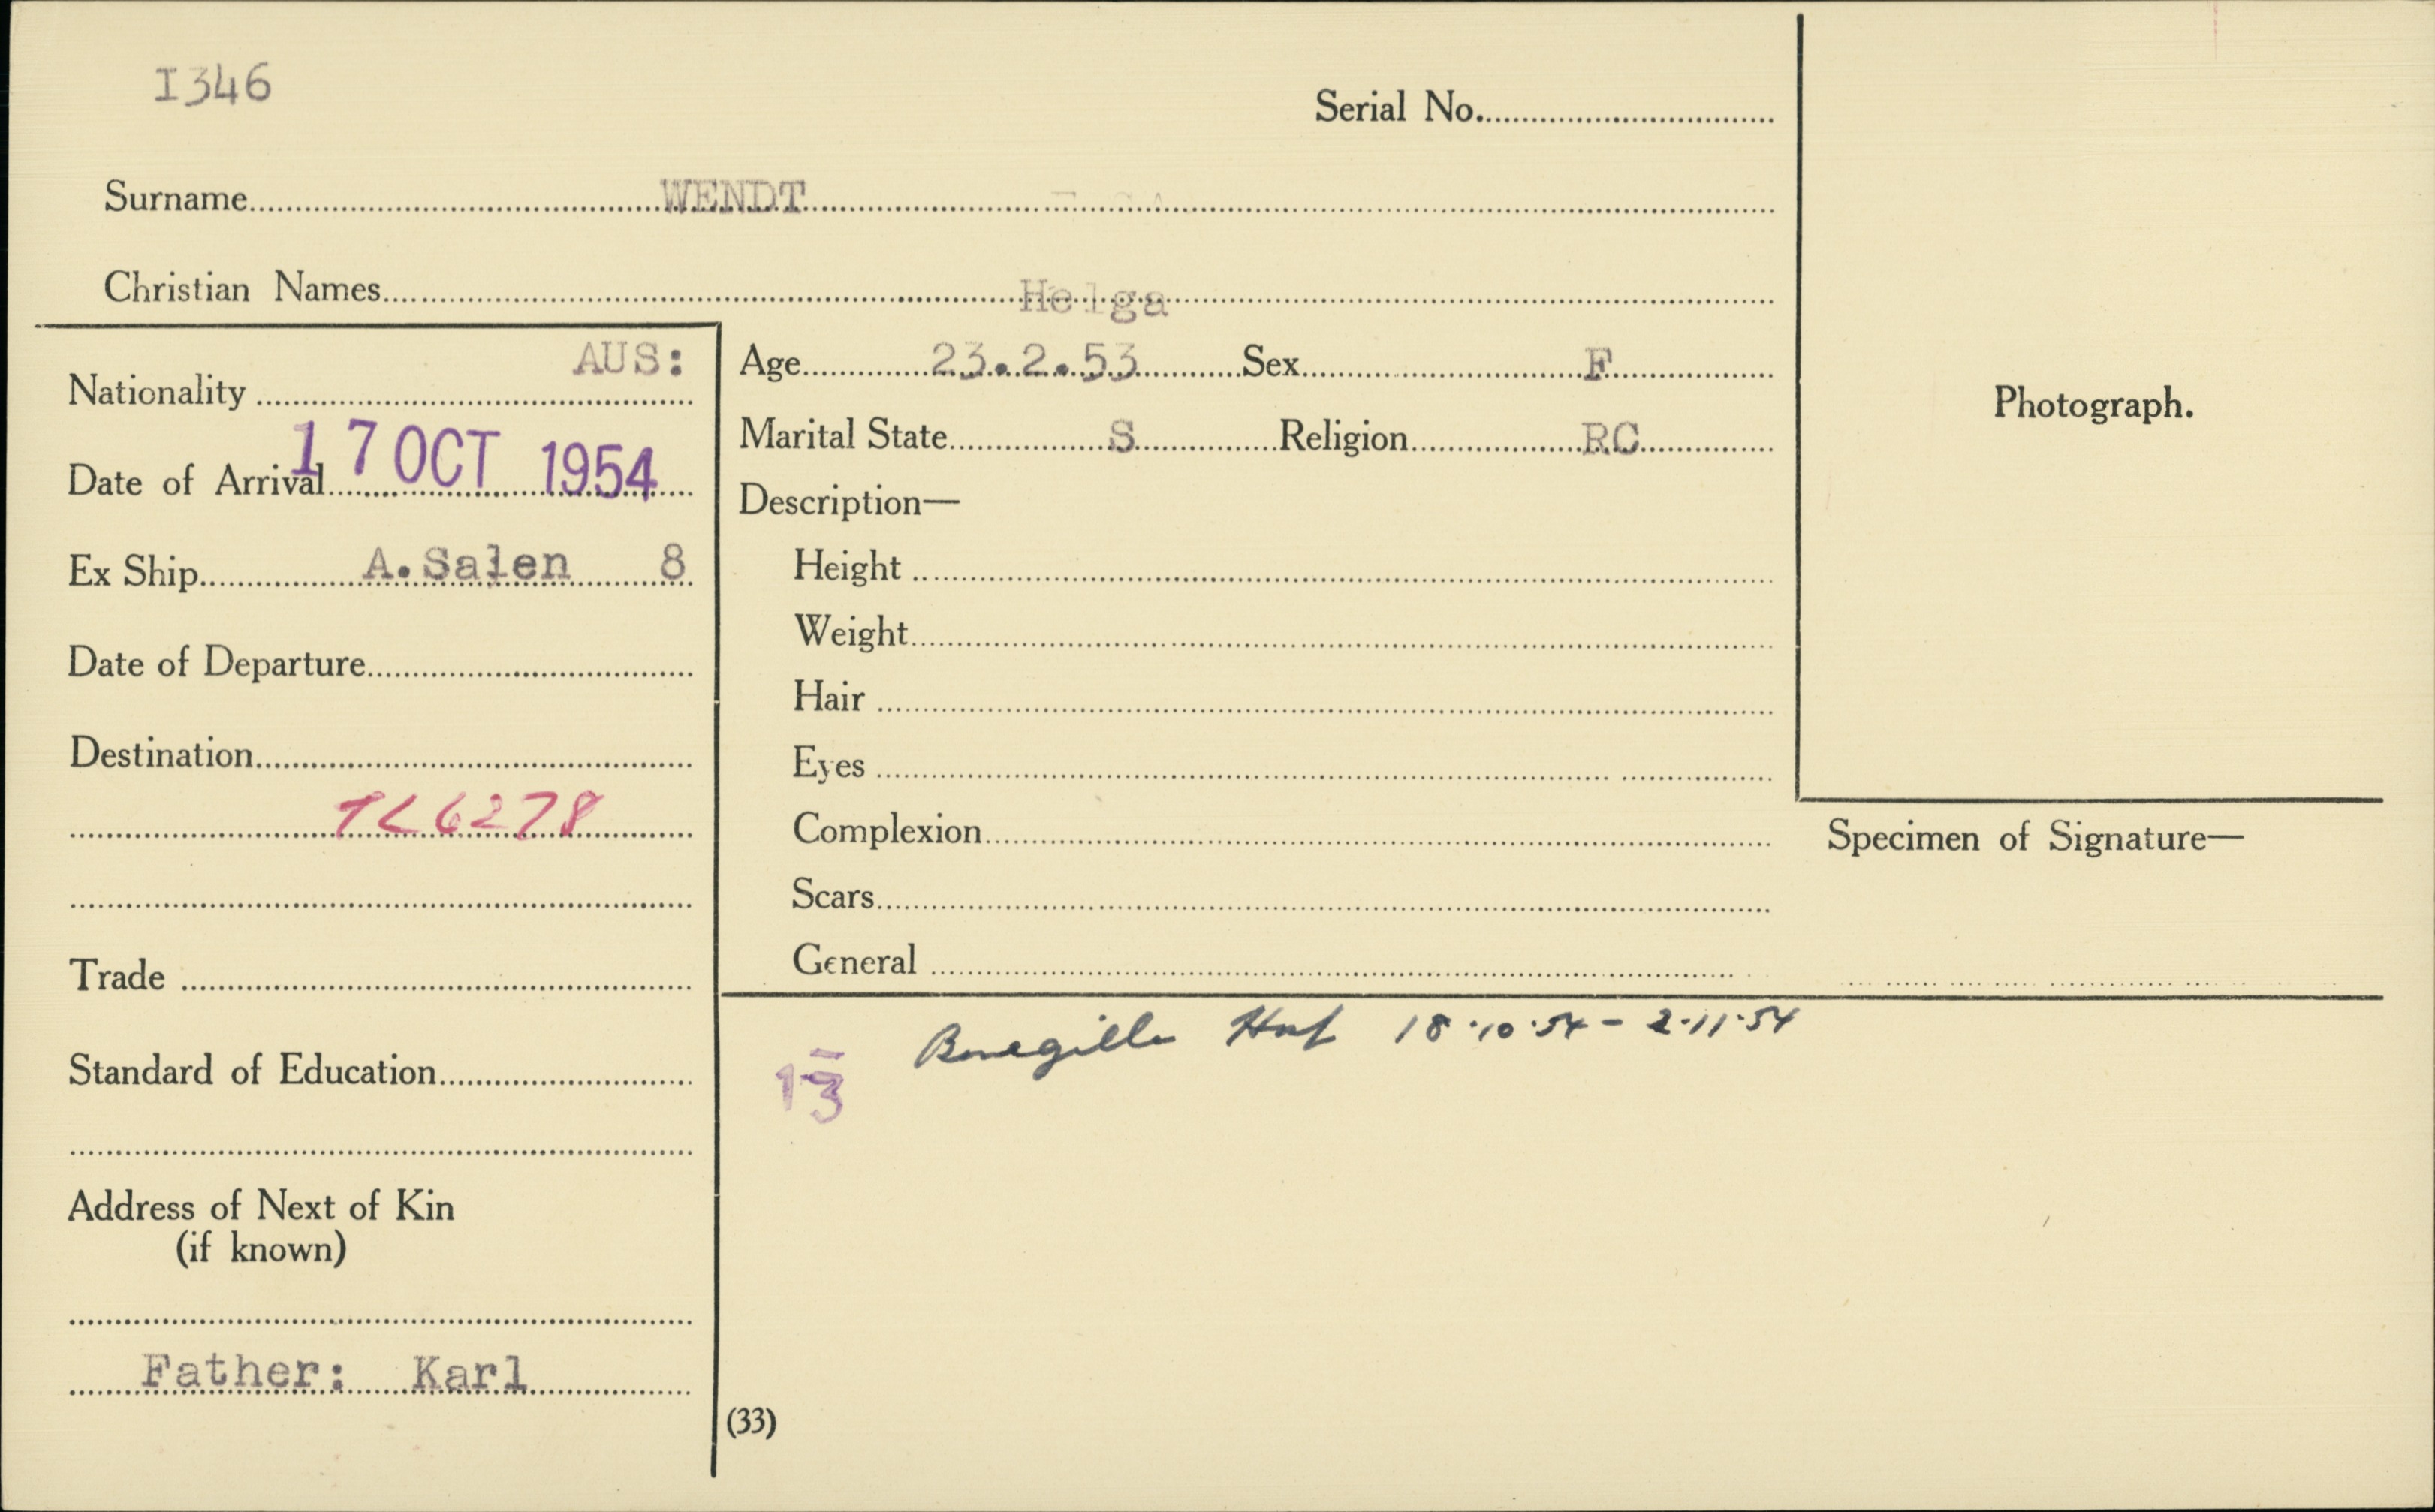 I346
Serial No.
Surname WENDT
Christian Names Helga
Nationality AUS:
Date of Arrival 17 OCT 1954
Ex Ship A.Salen 8
Date of Departure
Destination
TL6278
Trade
Standard of Education
Address of Next of Kin
(if known)
Father: Karl
Age 23.2.53 Sex F
Marital State S Religion RC
Description—
Height
Weight
Hair
Eyes
Complexion
Scars
General
Photograph.
Specimen of Signature—
Bonegilla 18.10.54 - 2.11.54
13
(33)